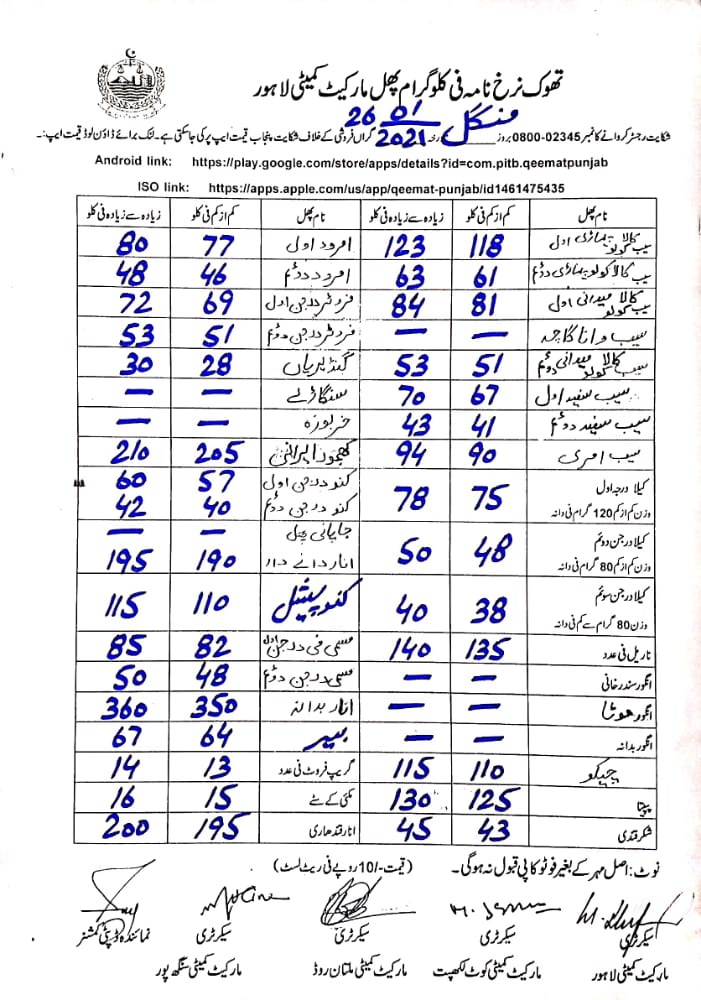 تھوک نرخ نامہ فی کلو گرام پھل مارکیٹ کمیٹی لاہور
شکایت رجسٹر کروانے کا نمبر 02345-0800 بروز منگل 26 01 2021 گراں فروشی کے خلاف شکایت پنجاب قیمت ایپ پر کی جا سکتی ہے۔ لنک برائے ڈاؤن لوڈ قیمت ایپ:۔
Android link: https://play.google.com/store/apps/details?id=com.pitb.qeematpunjab
ISO link: https://apps.apple.com/us/app/qeemat-punjab/id1461475435
نام پھل کم از کم فی کلو زیادہ سے زیادہ فی کلو نام پھل کم از کم فی کلو زیادہ سے زیادہ فی کلو
سیب کالا کولو پہاڑی اول 118 123 امرود اول 77 80
سیب کالا کولو پہاڑی دوئم 61 63 امرود دوئم 46 48
سیب کالا کولو میدانی اول 81 84 فروٹر درجن اول 69 72
سیب وانا گاچہ — — فروٹر درجن دوئم 51 53
سیب کالا کولو میدانی دوئم 51 53 گنڈیریاں 28 30
سیب سفید اول 67 70 سنگاڑے — —
سیب سفید دوئم 41 43 خربوزہ — —
سیب امری 90 94 کھجور ایرانی 205 210
کیلا درجہ اول وزن کم از کم 120 گرام فی دانہ 75 78 کنو درجن اول 57 60
کنو درجن دوئم 40 42
کیلا درجن دوئم وزن کم از کم 80 گرام فی دانہ 48 50 جاپانی پھل — —
انار دانے دار 190 195
کیلا درجن سوئم وزن 80 گرام سے کم فی دانہ 38 40 کنو پیشل 110 115
ناریل فی عدد 135 140 مسمی فی درجن اول 82 85
انگور سندر خانی — — مسمی درجن دوئم 48 50
انگور موٹا — — انار بدانہ 350 360
انگور بدانہ — — بیر 64 67
چیکو 110 115 گریپ فروٹ فی عدد 13 14
پپیتا 125 130 مکئی کے سٹے 15 16
شکر قندی 43 45 انار قندھاری 195 200
نوٹ: اصل مہر کے بغیر فوٹو کاپی قبول نہ ہو گی۔ (قیمت -/10 روپے فی ریٹ لسٹ)
سیکرٹری سیکرٹری سیکرٹری سیکرٹری نمائندہ ڈپٹی کمشنر
مارکیٹ کمیٹی لاہور مارکیٹ کمیٹی کوٹ لکھپت مارکیٹ کمیٹی ملتان روڈ مارکیٹ کمیٹی سنگھ پور